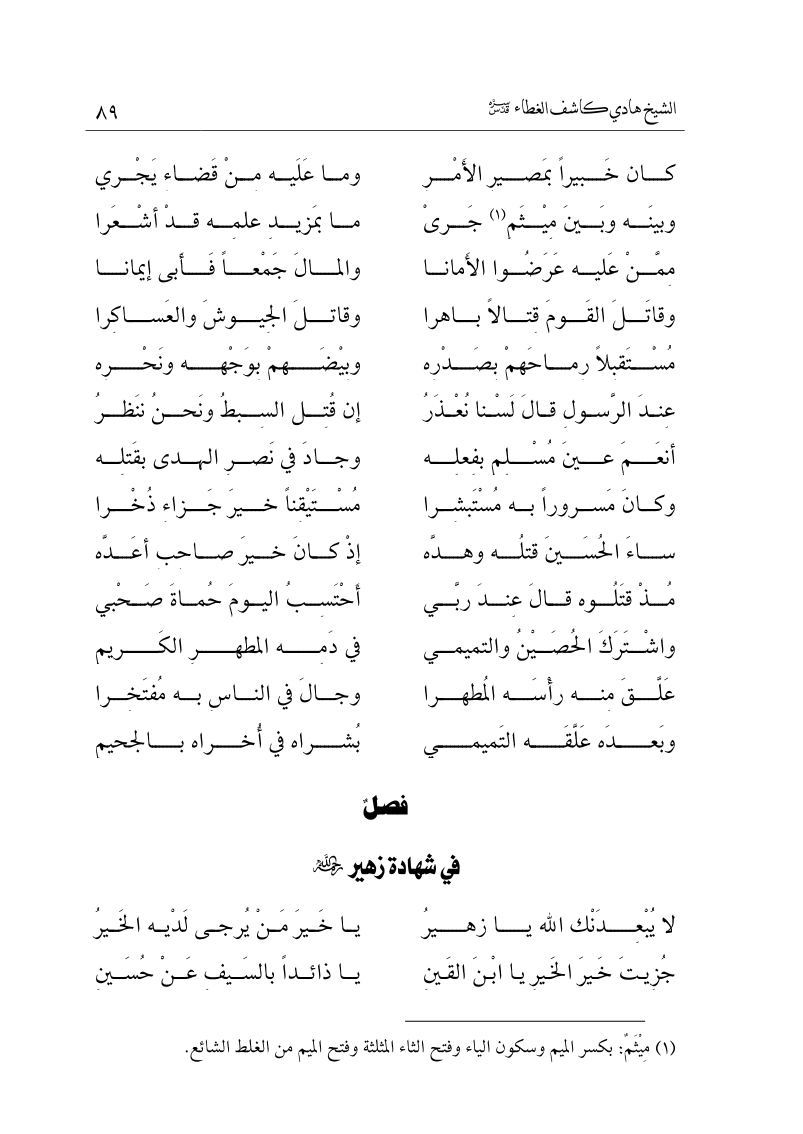 الشيخ هادي كاشف الغطاء قدس سره ٨٩
كان خَبيراً بمَصير الأمْر وما عَلَيه منْ قَضاء يَجْري
وبينَه وبَينَ ميْثَم (١) جَرىْ ما بمَزيد علمه قدْ أشْعَرا
ممَّنْ عَليه عَرَضُوا الأمانا والمالَ جَمْعاً فَأبى إيمانا
وقاتَلَ القَومَ قتالاً باهرا وقاتلَ الجيوشَ والعَساكرا
مُسْتَقبلاً رماحَهمْ بصَدْره وبيْضَهمْ بوَجْهه ونَحْره
عندَ الرَّسول قالَ لَسْنا نُعْذَرُ إن قُتل السبطُ ونَحنُ نَنَظرُ
أنعَمَ عينَ مُسْلم بفعله وجادَ في نَصر الهدى بقَتله
وكانَ مَسروراً به مُسْتَبشرا مُسْتَيْقناً خيرَ جَزاء ذُخْرا
ساءَ الحُسَينَ قتلُه وهدَّه إذْ كانَ خيرَ صاحب أعَدَّه
مُذْ قتَلُوه قالَ عندَ ربَّي أحْتَسبُ اليومَ حُماةَ صَحْبي
واشْتَرَكَ الحُصَيْنُ والتميمي في دَمه المطهر الكَريم
عَلَّقَ منه رأْسَه المُطهرا وجالَ في الناس به مُفتَخرا
وبَعدَه عَلَّقَه التَميمي بُشراه في أُخراه بالجحيم
فصلٌ
في شهادة زهير رحمه الله
لا يُبْعدَنْك الله يا زهيرُ يا خَيرَ مَنْ يُرجى لَدْيه الخَيرُ
جُزيتَ خَيرَ الخَير يا ابْنَ القَين يا ذائداً بالسَيف عَنْ حُسَين
(١) ميْثَمٌ: بكسر الميم وسكون الياء وفتح الثاء المثلثة وفتح الميم من الغلط الشائع.